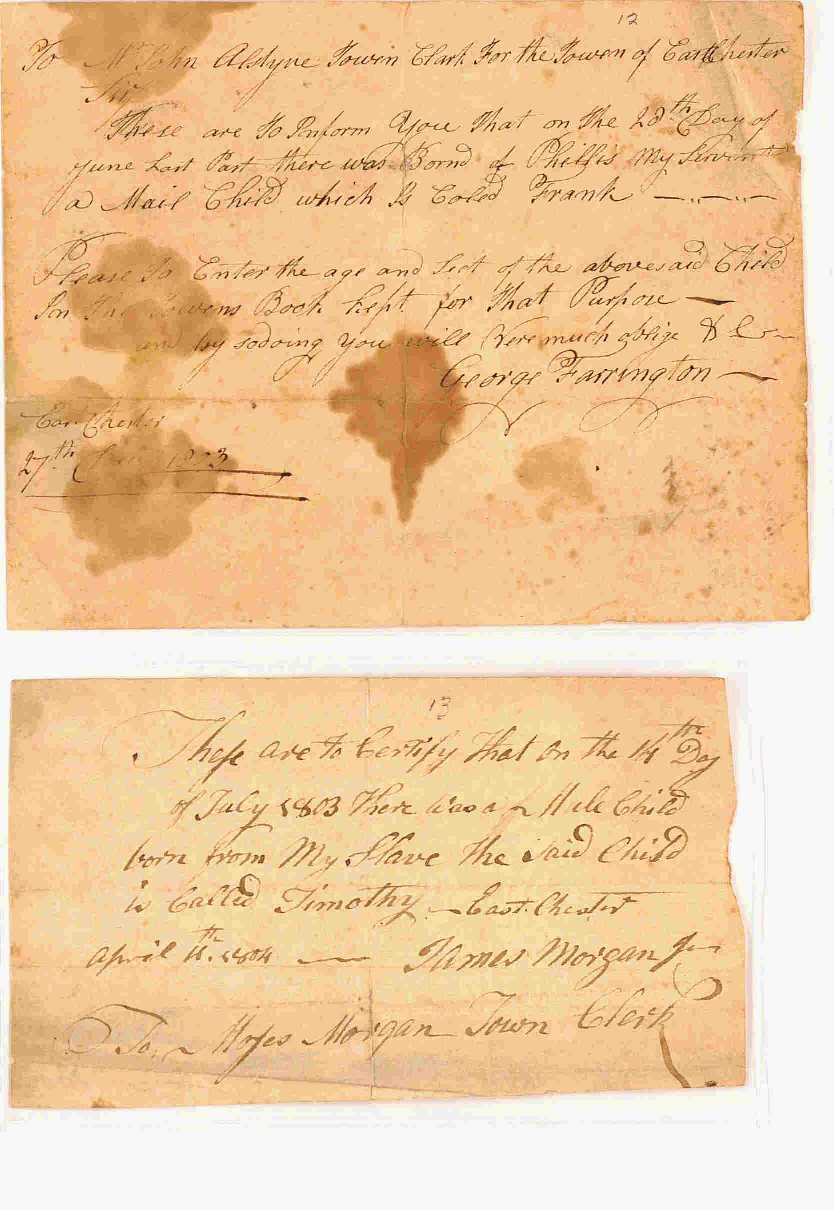 12
To Mr John Alstyne Towen Clark For the Towen of EastChester
Sir
These are To Innform You That on The 28th Day of
June Last Past there was Bornd of Phillis My Servant
a Mail Child which Is Coled Frank
Please To Enter the age and Sect of the abovesaid Child
Inn The Towens Book kept for That Purpose
and by sodoing You will Vere much oblige &c
George Farrington
East Chester
27th 1803
13
These are to Certify that On the 14th Day
of July 1803 There was a Male Child
born from My Slave the Said Child
is Called Timothy East Chester
April 1804 James Morgan Jun
To Moses Morgan Town Clerk